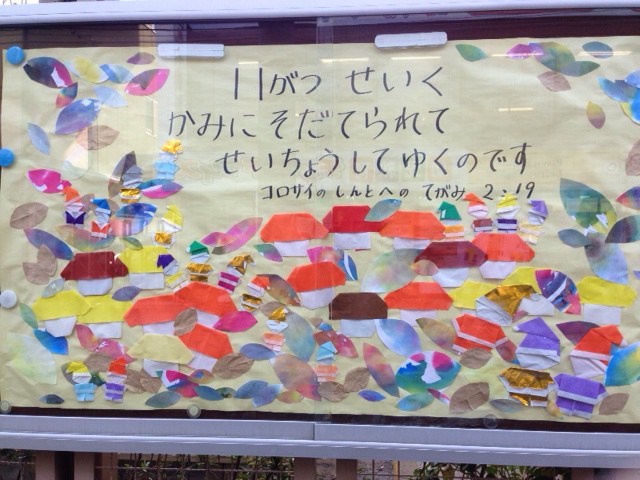 11がつ せいく
かみに そだてられて
せいちょうしてゆくのです
コロサイの しんとへの てがみ 2:19